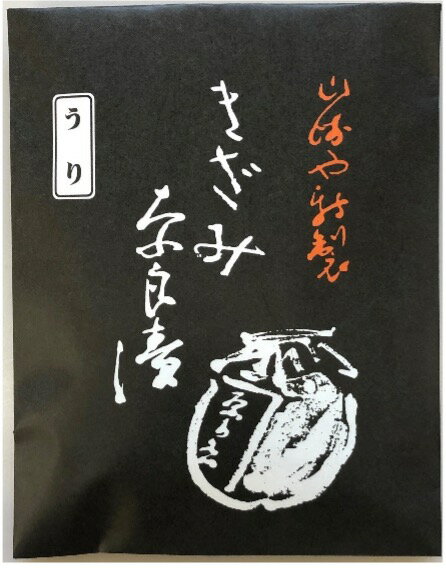 山崎や特製
きざみ
奈良漬
うり